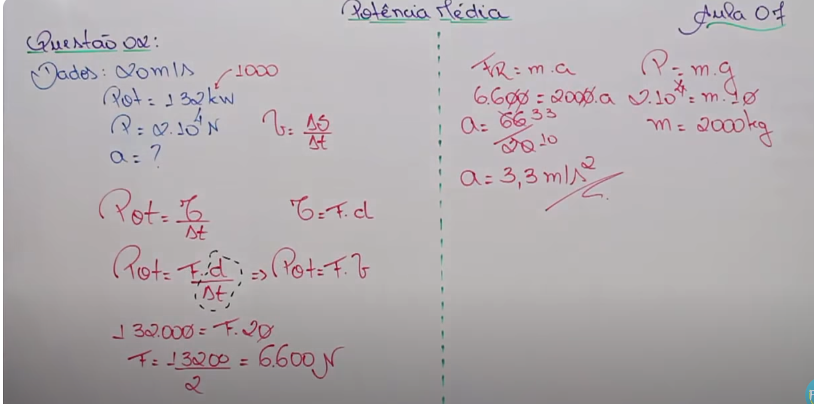 Potência Média
Aula 07
Questão 02:
Dados: 20m/s
1000
Pot = 132kw
P = 2.10⁴N
a = ?
v = ΔS/Δt
Pot = τ/Δt
τ = F.d
Pot = F.d/Δt => Pot = F.v
132.000 = F.20
F = 13200/2 = 6.600N
FR = m.a
6.600 = 2000.a
a = 66 33/20 10
a = 3,3 m/s²
P = m.g
2.10⁴ = m.10
m = 2000kg